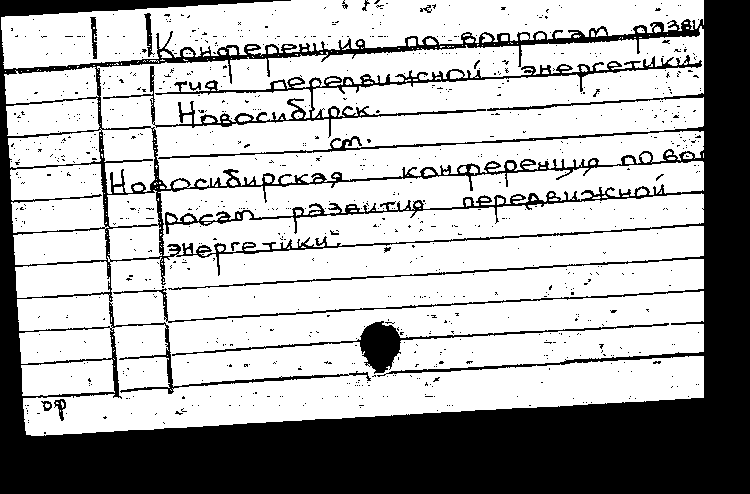 Конференция по вопросам разви
тия передвижной энергетики.
Новосибирск.
ст.
Новосибирская конференция по воп
росам развития передвижной
энергетики.
оф